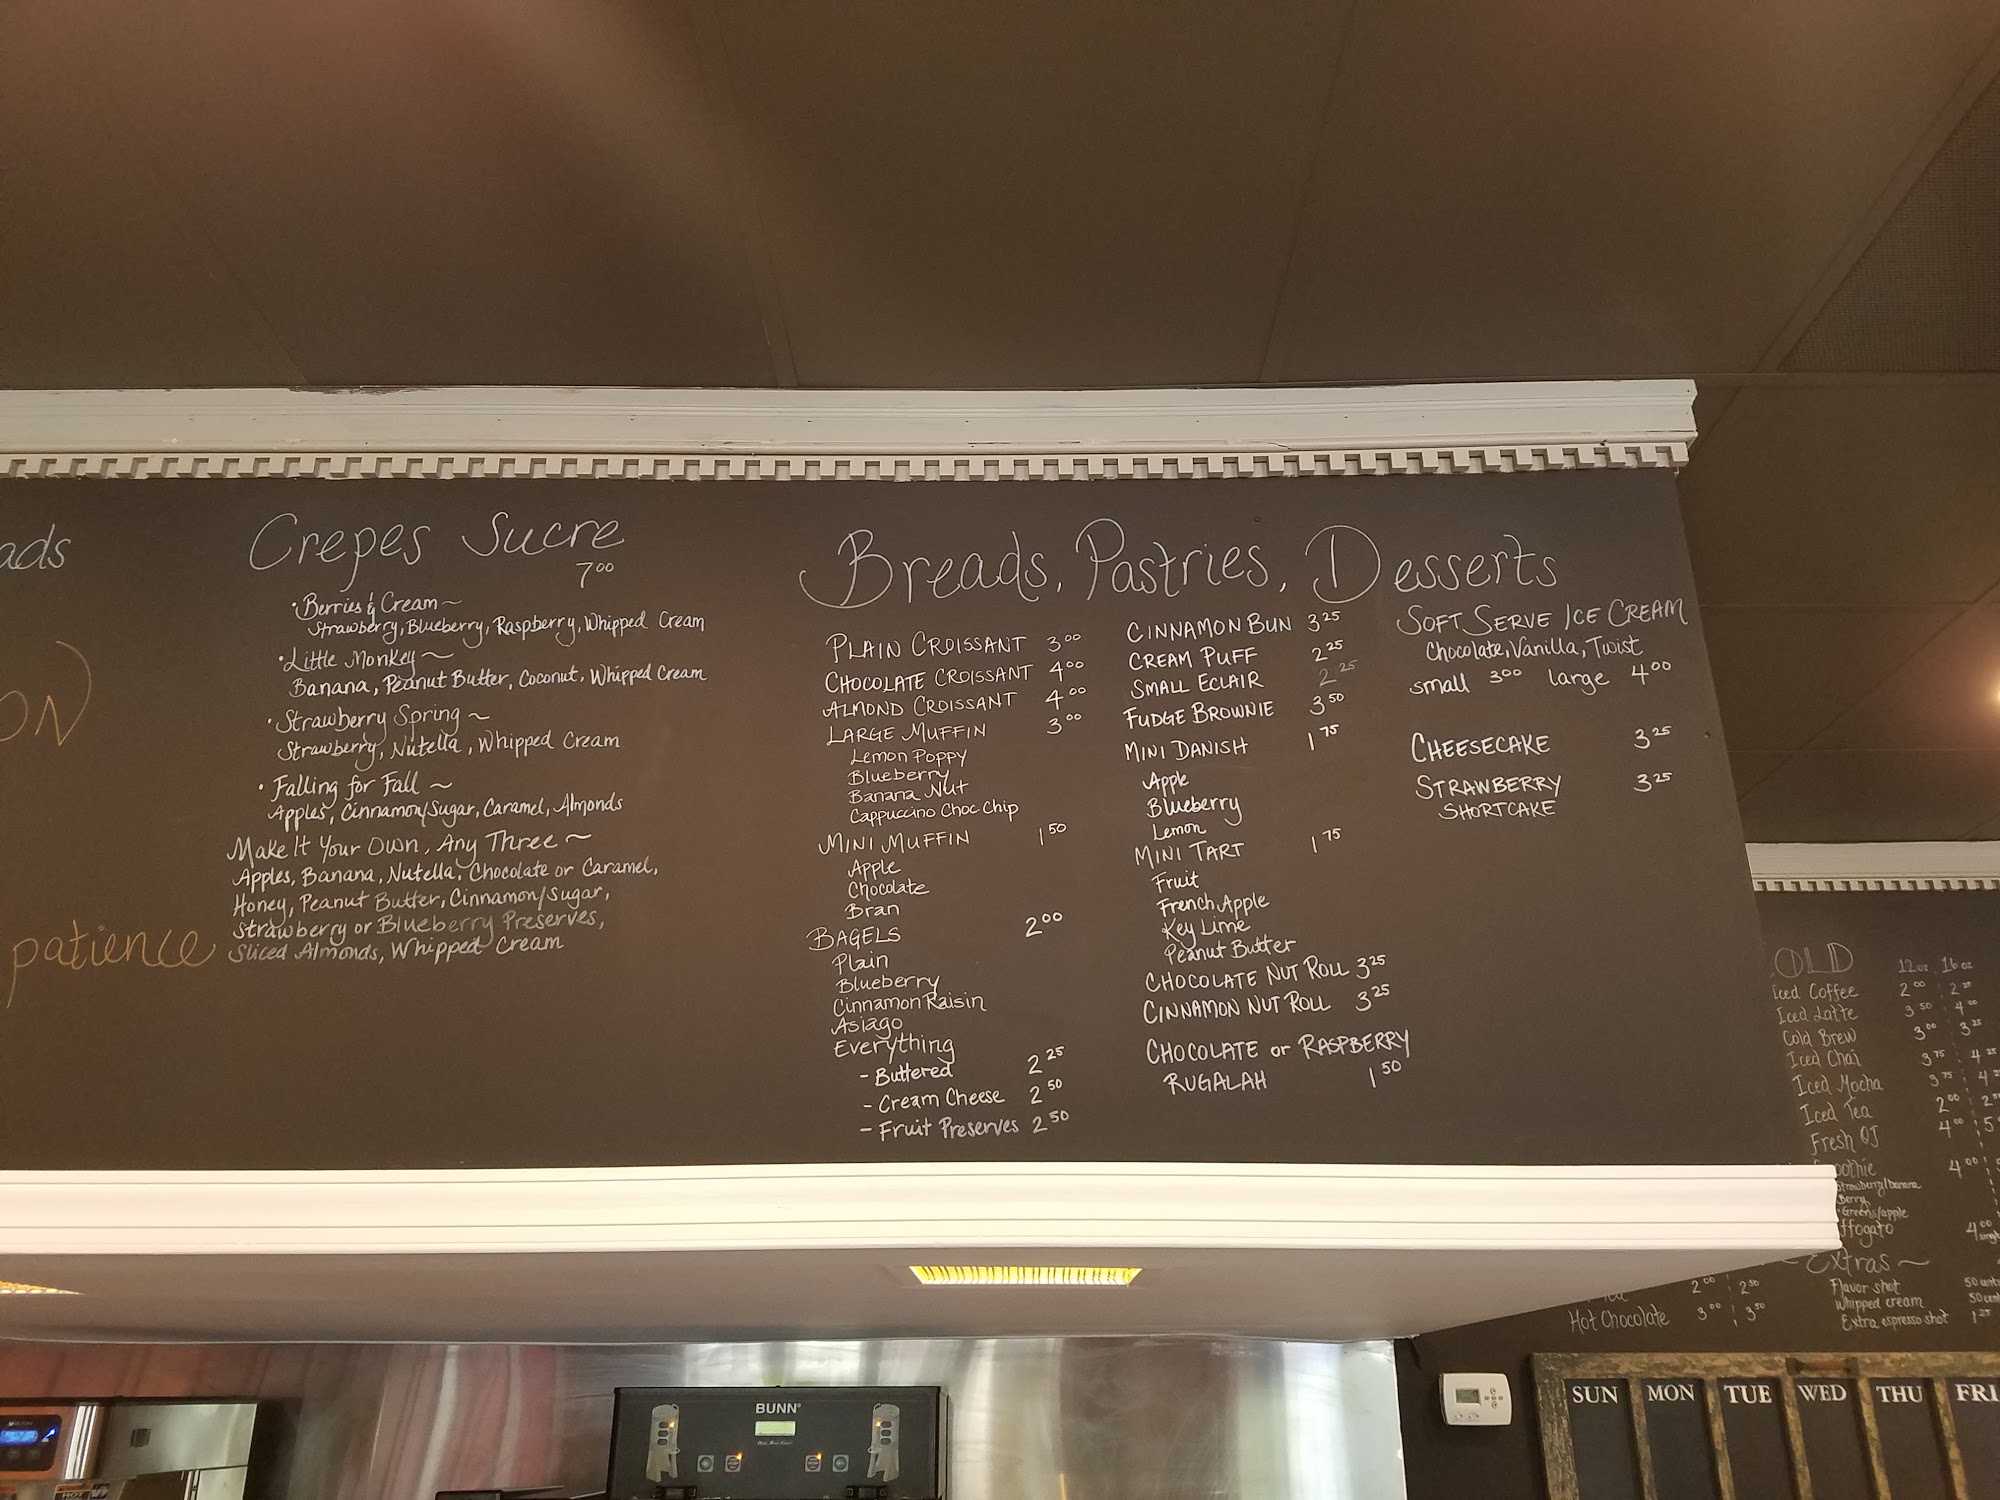 ads
ON)
patience
Crepes Sucre
7.00
• Berries & Cream ~
Strawberry, Blueberry, Raspberry, Whipped Cream
• Little Monkey ~
Banana, Peanut Butter, Coconut, Whipped Cream
• Strawberry Spring ~
Strawberry, Nutella, Whipped Cream
• Falling for Fall ~
Apples, Cinnamon/Sugar, Caramel, Almonds
Make It Your Own, Any Three ~
Apples, Banana, Nutella, Chocolate or Caramel,
Honey, Peanut Butter, Cinnamon/Sugar,
Strawberry or Blueberry Preserves,
Sliced Almonds, Whipped Cream
Breads, Pastries, Desserts
PLAIN CROISSANT 3 00
CHOCOLATE CROISSANT 4 00
ALMOND CROISSANT 4 00
LARGE MUFFIN 3 00
Lemon Poppy
Blueberry
Banana Nut
Cappuccino Choc Chip
MINI MUFFIN 1 50
Apple
Chocolate
Bran
BAGELS 2 00
Plain
Blueberry
Cinnamon Raisin
Asiago
Everything
- Buttered 2 25
- Cream Cheese 2 50
- Fruit Preserves 2 50
CINNAMON BUN 3 25
CREAM PUFF 2 25
SMALL ECLAIR 2 25
FUDGE BROWNIE 3 50
MINI DANISH 1 75
Apple
Blueberry
Lemon
MINI TART 1 75
Fruit
French Apple
Key Lime
Peanut Butter
CHOCOLATE NUT ROLL 3 25
CINNAMON NUT ROLL 3 25
CHOCOLATE or RASPBERRY
RUGALAH 1 50
SOFT SERVE ICE CREAM
Chocolate, Vanilla, Twist
small 3 00 large 4 00
CHEESECAKE 3 25
STRAWBERRY 3 25
SHORTCAKE
OLD 12 oz 16 oz
Iced Coffee 2 00 2 25
Iced Latte 3 50 4 00
Cold Brew 3 00 3 25
Iced Chai 3 75 4 25
Iced Mocha 3 75 4 2
Iced Tea 2 00 2
Fresh OJ 4 00 5
oothie 4 00
Strawberry/banana
Berry
Greens/apple
ffogato 4 00
Extras ~
Flavor shot 50 cents
Whipped cream 50 cent
Extra espresso shot 1 25
2 00 2 50
Hot Chocolate 3 00 3 50
BUNN
SUN MON TUE WED THU FRI
HOT